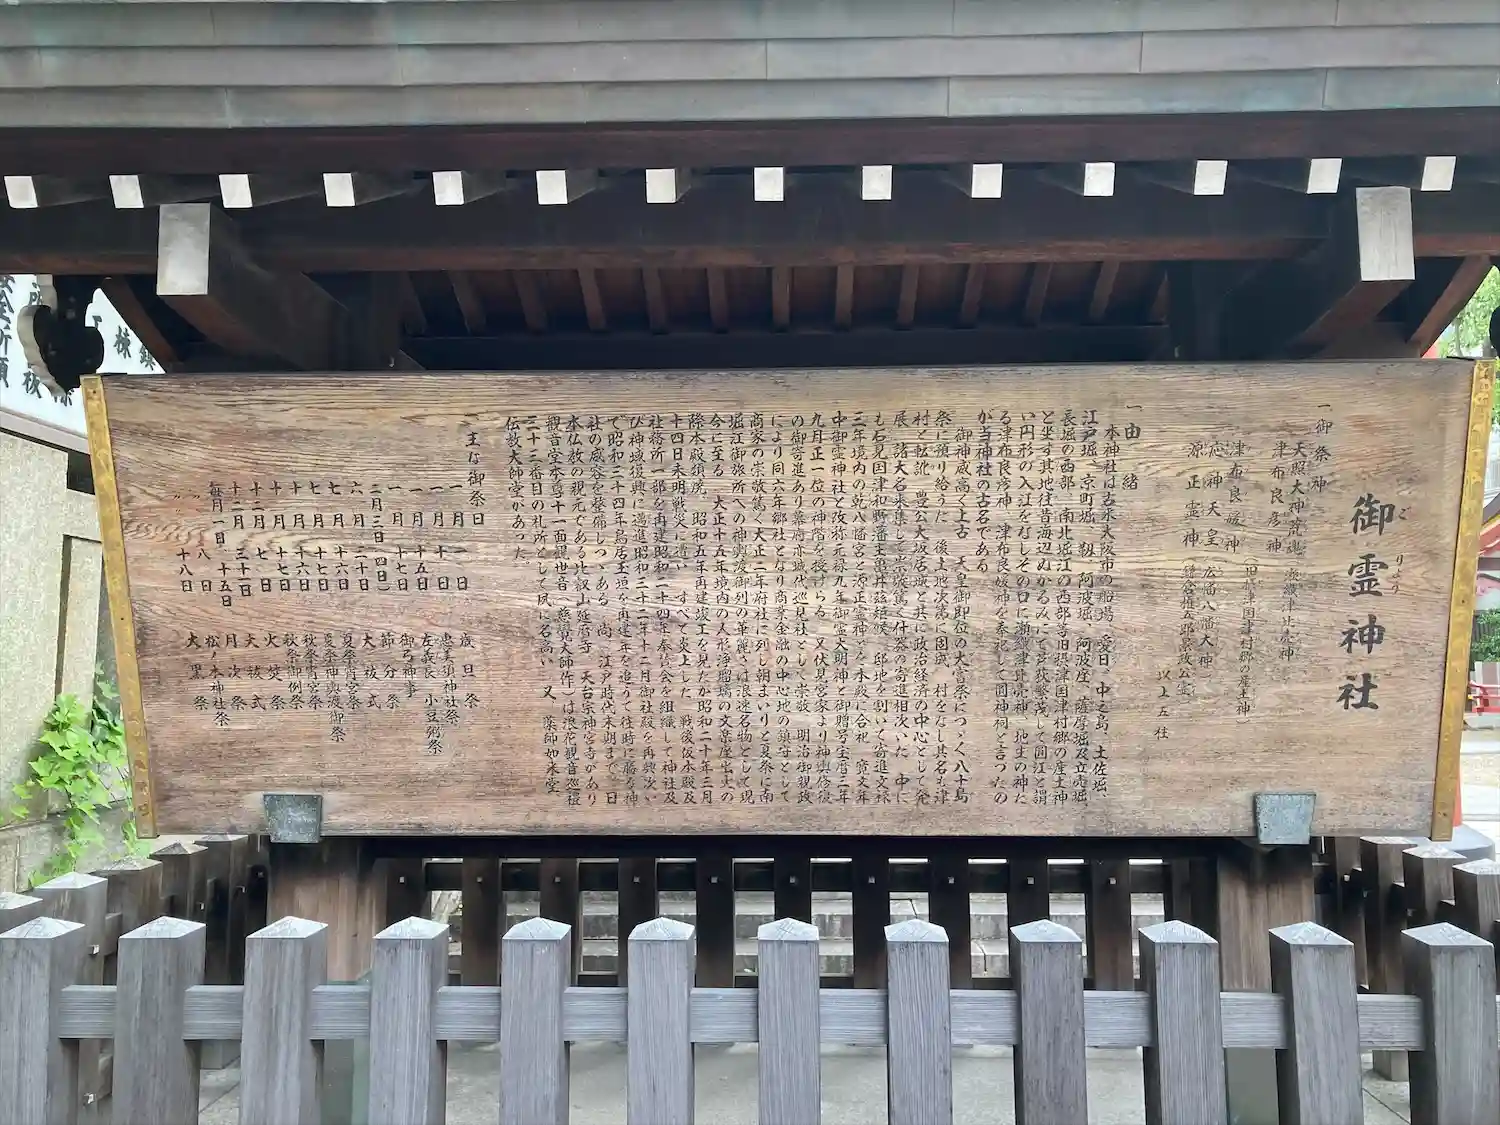 御霊神社
ごりょう
一、御祭神
天照大神荒魂 瀬織津比売神
津布良彦神
津布良媛神 旧摂津国津村郷の産土神
応神天皇 広幡八幡大神
源正霊神 鎌倉権五郎景政公霊
以上五柱
一、由緒
本神社は古来大阪市の船場、愛日、中之島、土佐堀、
江戸堀、京町堀、靱、阿波座、薩摩堀及立売堀、
長堀の西部、南北堀江の西部等旧摂津国津村郷の産土神
と坐す其地往昔海辺ぬかるみにて芦荻繁茂して圓江と謂
い円形の入江をなしその口に瀬織津比売神、地主の神た
る津布良彦神、津布良媛神を奉祀して圓神祠と言つたの
が当神社の古名である
御神威高く上古 天皇御即位の大嘗祭につゞく八十島
祭に預り給うた 後土地次第に固成、村をなし其名も津
村と転訛、豊公大坂居城と共に政治経済の中心として発
展、諸大名来集して崇敬篤く什器の寄進相次いだ 中に
も石見国津和野藩主亀井茲矩候、邸地を割いて寄進文禄
三年境内の乾八幡宮と源正霊神とを本殿に合祀 寛文年
中御霊神社と改称元禄九年御霊大明神と御贈号宝暦三年
九月正一位の神階を授けらる 又伏見宮家より神輿修復
の御寄進あり幕府亦城代巡見社として崇敬、明治御親政
により同六年郷社となり商業金融の中心地の鎮守として
商家の崇敬篤く大正二年府社に列し朝まいりと夏祭に南
堀江御旅所への神輿渡御列の華麗さは浪速名物として現
今に至る 大正十五年境内の人形浄瑠璃の文楽座出火の
際本殿類焼、昭和五年再建竣工を見たが昭和二十年三月
十四日未明戦災に遭い すべて炎上した 戦後仮本殿及
社務所一部を再建昭和二十四年奉賛会を組織して神社及
び神域復興に邁進昭和三十二年十二月御社殿を再興次い
で昭和三十四年鳥居玉垣を再建年を追うて往時に勝る神
社の威容を整備しつゝある 尚、江戸時代末期まで今日
本仏教の親元である比叡山延暦寺、天台宗神宮寺があり
観音堂本尊十一面観世音（慈覚大師作）は浪花観音巡礼
三十三番目の札所として夙に名高い 又、薬師如来堂、
伝教大師堂があった。
主な御祭日
一月 一日 歳旦祭
一月 十日 恵美須神社祭
一月 十五日 左義長 小豆粥祭
一月 十七日 御弓神事
二月三日（四日） 節分祭
六月 三十日 大祓式
七月 十六日 夏祭宵宮祭
七月 十七日 夏祭神輿渡御祭
十月 十六日 秋祭宵宮祭
十月 十七日 秋祭御例祭
十二月 七日 火焚祭
十二月 三十一日 大祓式
毎月一日、十五日 月次祭
〃 八日 松之木神社祭
〃 十八日 大黒祭